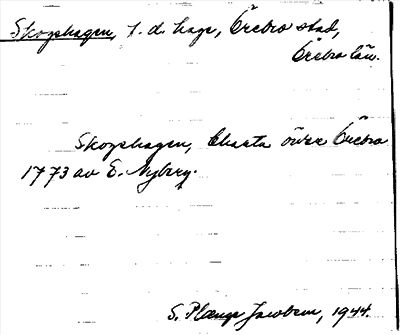 Skogshagen, f. d. hage, Örebro stad,
Örebro län.
Skogshagen, Charta över Örebro
1773 av E. Nyberg.
S. Jacobsen, 1944.